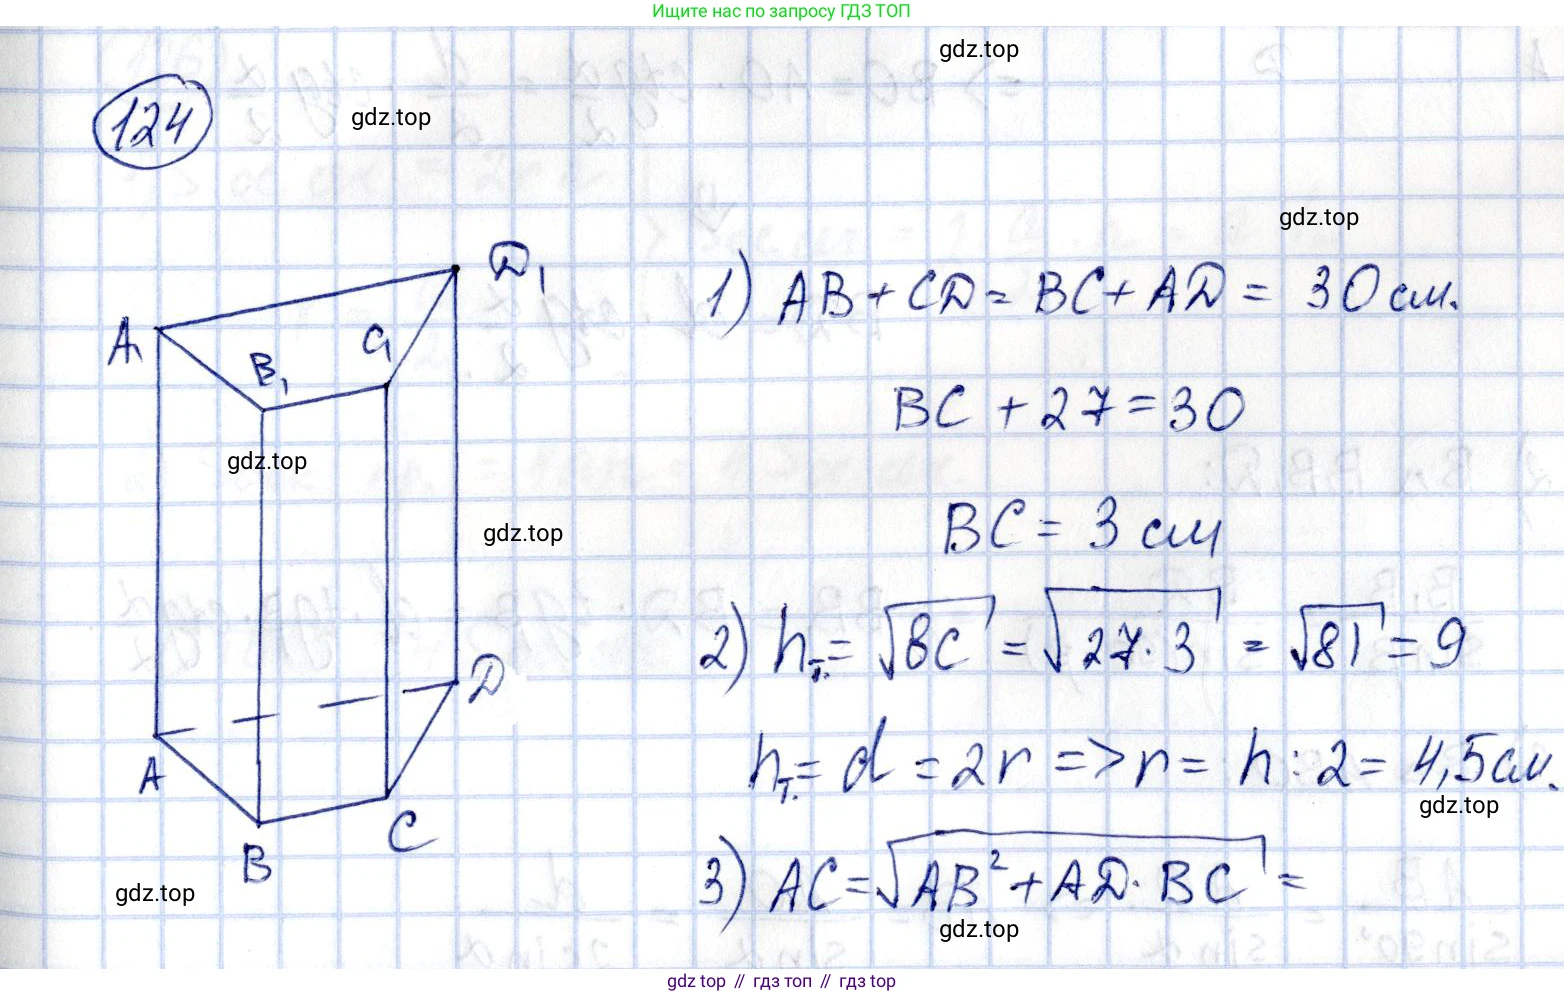 Ищите нас по запросу ГДЗ ТОП
gdz.top
124
gdz.top
gdz.top
D₁
1) AB + CD = BC + AD = 30 см.
A₁
B₁
C₁
BC + 27 = 30
gdz.top
gdz.top
BC = 3 см
2) hт. = √BC = √27·3 = √81 = 9
D
hт. = d = 2r => r = h : 2 = 4,5 см.
A
gdz.top
B
C
3) AC = √AB² + AD · BC =
gdz.top
gdz.top
gdz top // гдз топ // гдз top